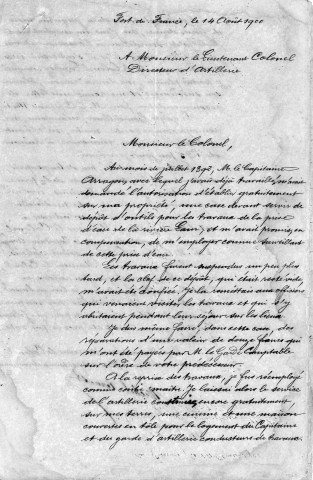 Fort-de-France, le 14 Août 1900
A Monsieur le Lieutenant Colonel
Directeur d'Artillerie
Monsieur le Colonel,
Au mois de juillet 189, M. le Capitaine
avec lequel j'avais déjà travaillé, m'avait
demandé l'autorisation d'établir gratuitement
sur ma propriété, une case devant servir de
dépôt d'outils pour les travaux de la prise
d'eau de la rivière et m'avait promis, en
compensation, de m'employer comme surveillant
de cette prise d'eau.
Les travaux furent suspendus un peu plus
tard, et la clef de ce dépôt, qui était resté vide,
m'avait été confiée. Je la remettais aux officiers
qui venaient visiter les travaux et qui s'y
abritaient pendant leur séjour sur les lieux.
Je dus même faire, dans cette case, des
réparations d'une valeur de douze francs qui
m'ont été payées par M. le Garde Comptable
sur l'ordre de votre prédécesseur.
A la reprise des travaux, je fus réemployé
comme contre maître. Je laissai alors le service
de l'artillerie construire encore gratuitement
sur mes terres, une cuisine et une maison
couvertes en tôle pour le logement du Capitaine
et du garde d'artillerie conducteurs de travaux.